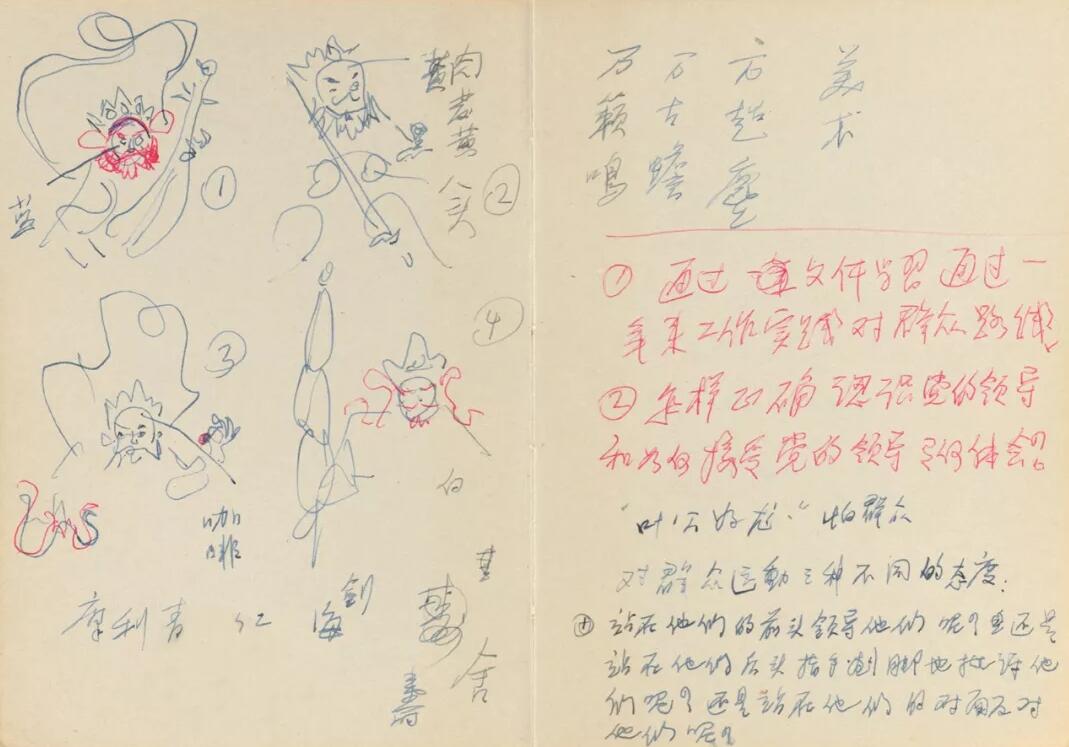 蓝
①
黄肉
老黄
八头
②
③
咖啡
④
白
摩利青
仁
海
剑
寿
舍
万籁鸣
万古蟾
万超塵
美术
① 通过 文件学习 通过一
年来工作实践对群众路线
② 怎样正确认识党的领导
和如何接受党的领导有何体会。
"叶公好龙" 怕群众
对群众运動三种不同的态度.
站在他们的前头领导他们呢？还是
站在他们后头指手划脚地批评他
们呢？还是站在他们的对面反对
他们呢？